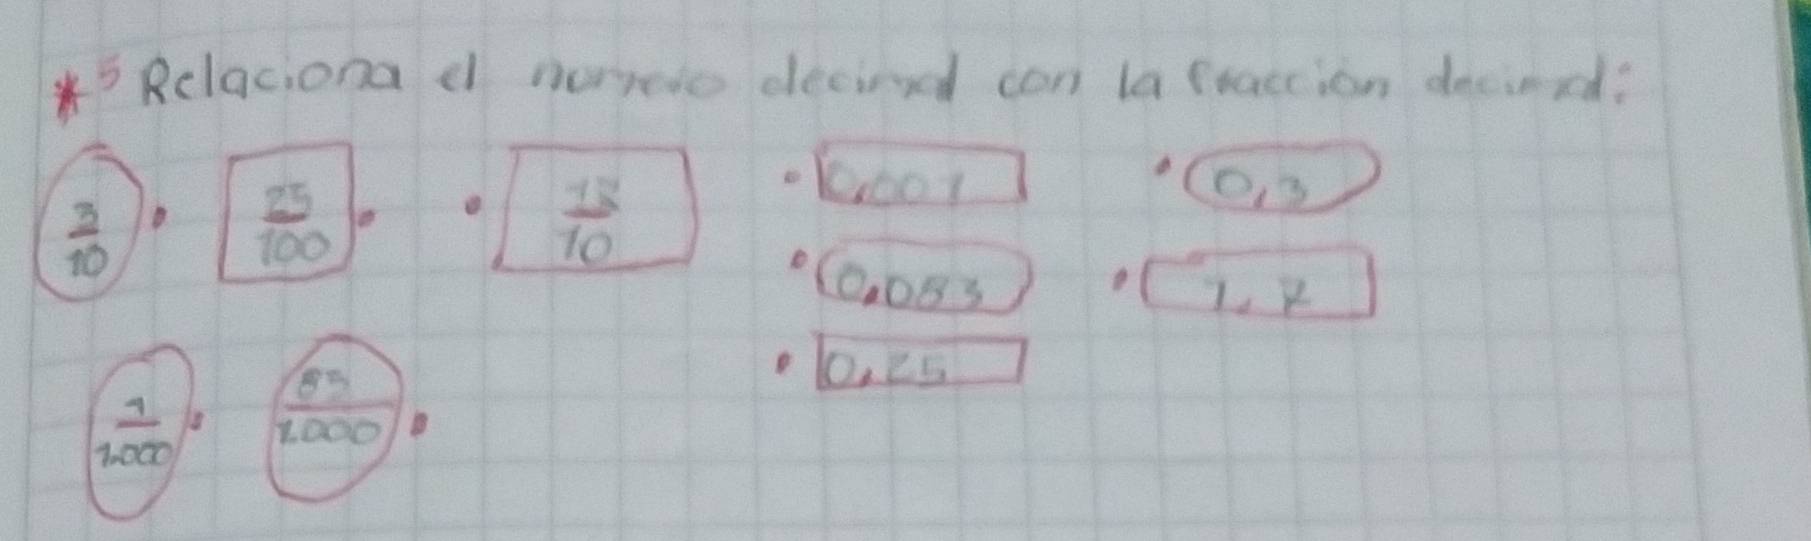 *5 Relaciona el numero decimal con la fracción decimal:
3/10 25/100 18/10 0,001 0,3
0,083 1,8
1/1.000 83/1.000 0,25